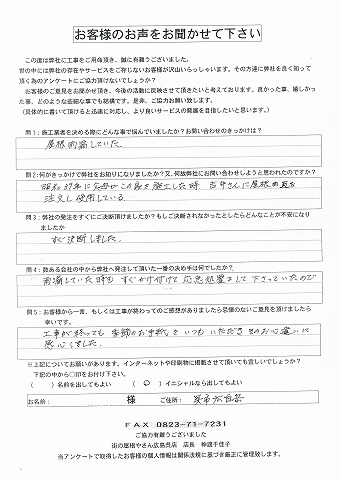 お客様のお声をお聞かせて下さい
この度は弊社に工事をご用命頂き、誠に有難うございました。
世の中には弊社の存在やサービスをご存じないお客様が沢山いらっしゃいます。その方達に弊社を良く知って
頂く為のアンケートにご協力頂けないでしょうか?
お客様のご意見をお聞かせ頂き、今後の活動に反映させて頂きたいと考えております。良かった事、嬉しかっ
た事、どのような些細な事でも結構です。是非、ご協力お願い致します。
(具体的に書いて頂けると迅速に対応し、より良いサービスの発展を目指したいと思います。)
問1:施工業者を決める際にどんな事で悩んでいましたか?お問い合わせのきっかけは?
屋根雨漏していた
問2:何がきっかけで弊社をお知りになりましたか?又、何故弊社にお問い合わせしようと思われたのですか?
昭和39年に
した時
さんに屋根
注文し使用している
問3:弊社の発注をすぐにご決断頂けましたか?もしご決断されなかったとしたらどんなことが不安になり
ましたか
すぐ決断しました。
問4:数ある会社の中から弊社へ発注して頂いた一番の決め手は何でしたか?
雨漏していた時もすぐかけ付けて応急処置をして下さっていたので
問5:お客様から一言、もしくは工事が終わってのご感想がありましたら忌憚のないご意見を頂けましたら
幸いです。
工事が終っても季節のお手紙をいつもいただき
お心遣いに
感心しました。
※上記についてお願いがあります。インターネットや印刷物に掲載させて頂いても宜しいでしょうか?
下記の中から〇印をお付け下さい。
( )名前を出してもよい ( ○ )イニシャルなら出してもよい
お名前: 様 ご住所: 呉市広古新
FAX 0823-71-7231
ご協力有難うございました
街の屋根やさん広島呉店 店長 神渡千佳子
当アンケートで取得したお客様の個人情報は関係法規に基づき厳正に管理致します。